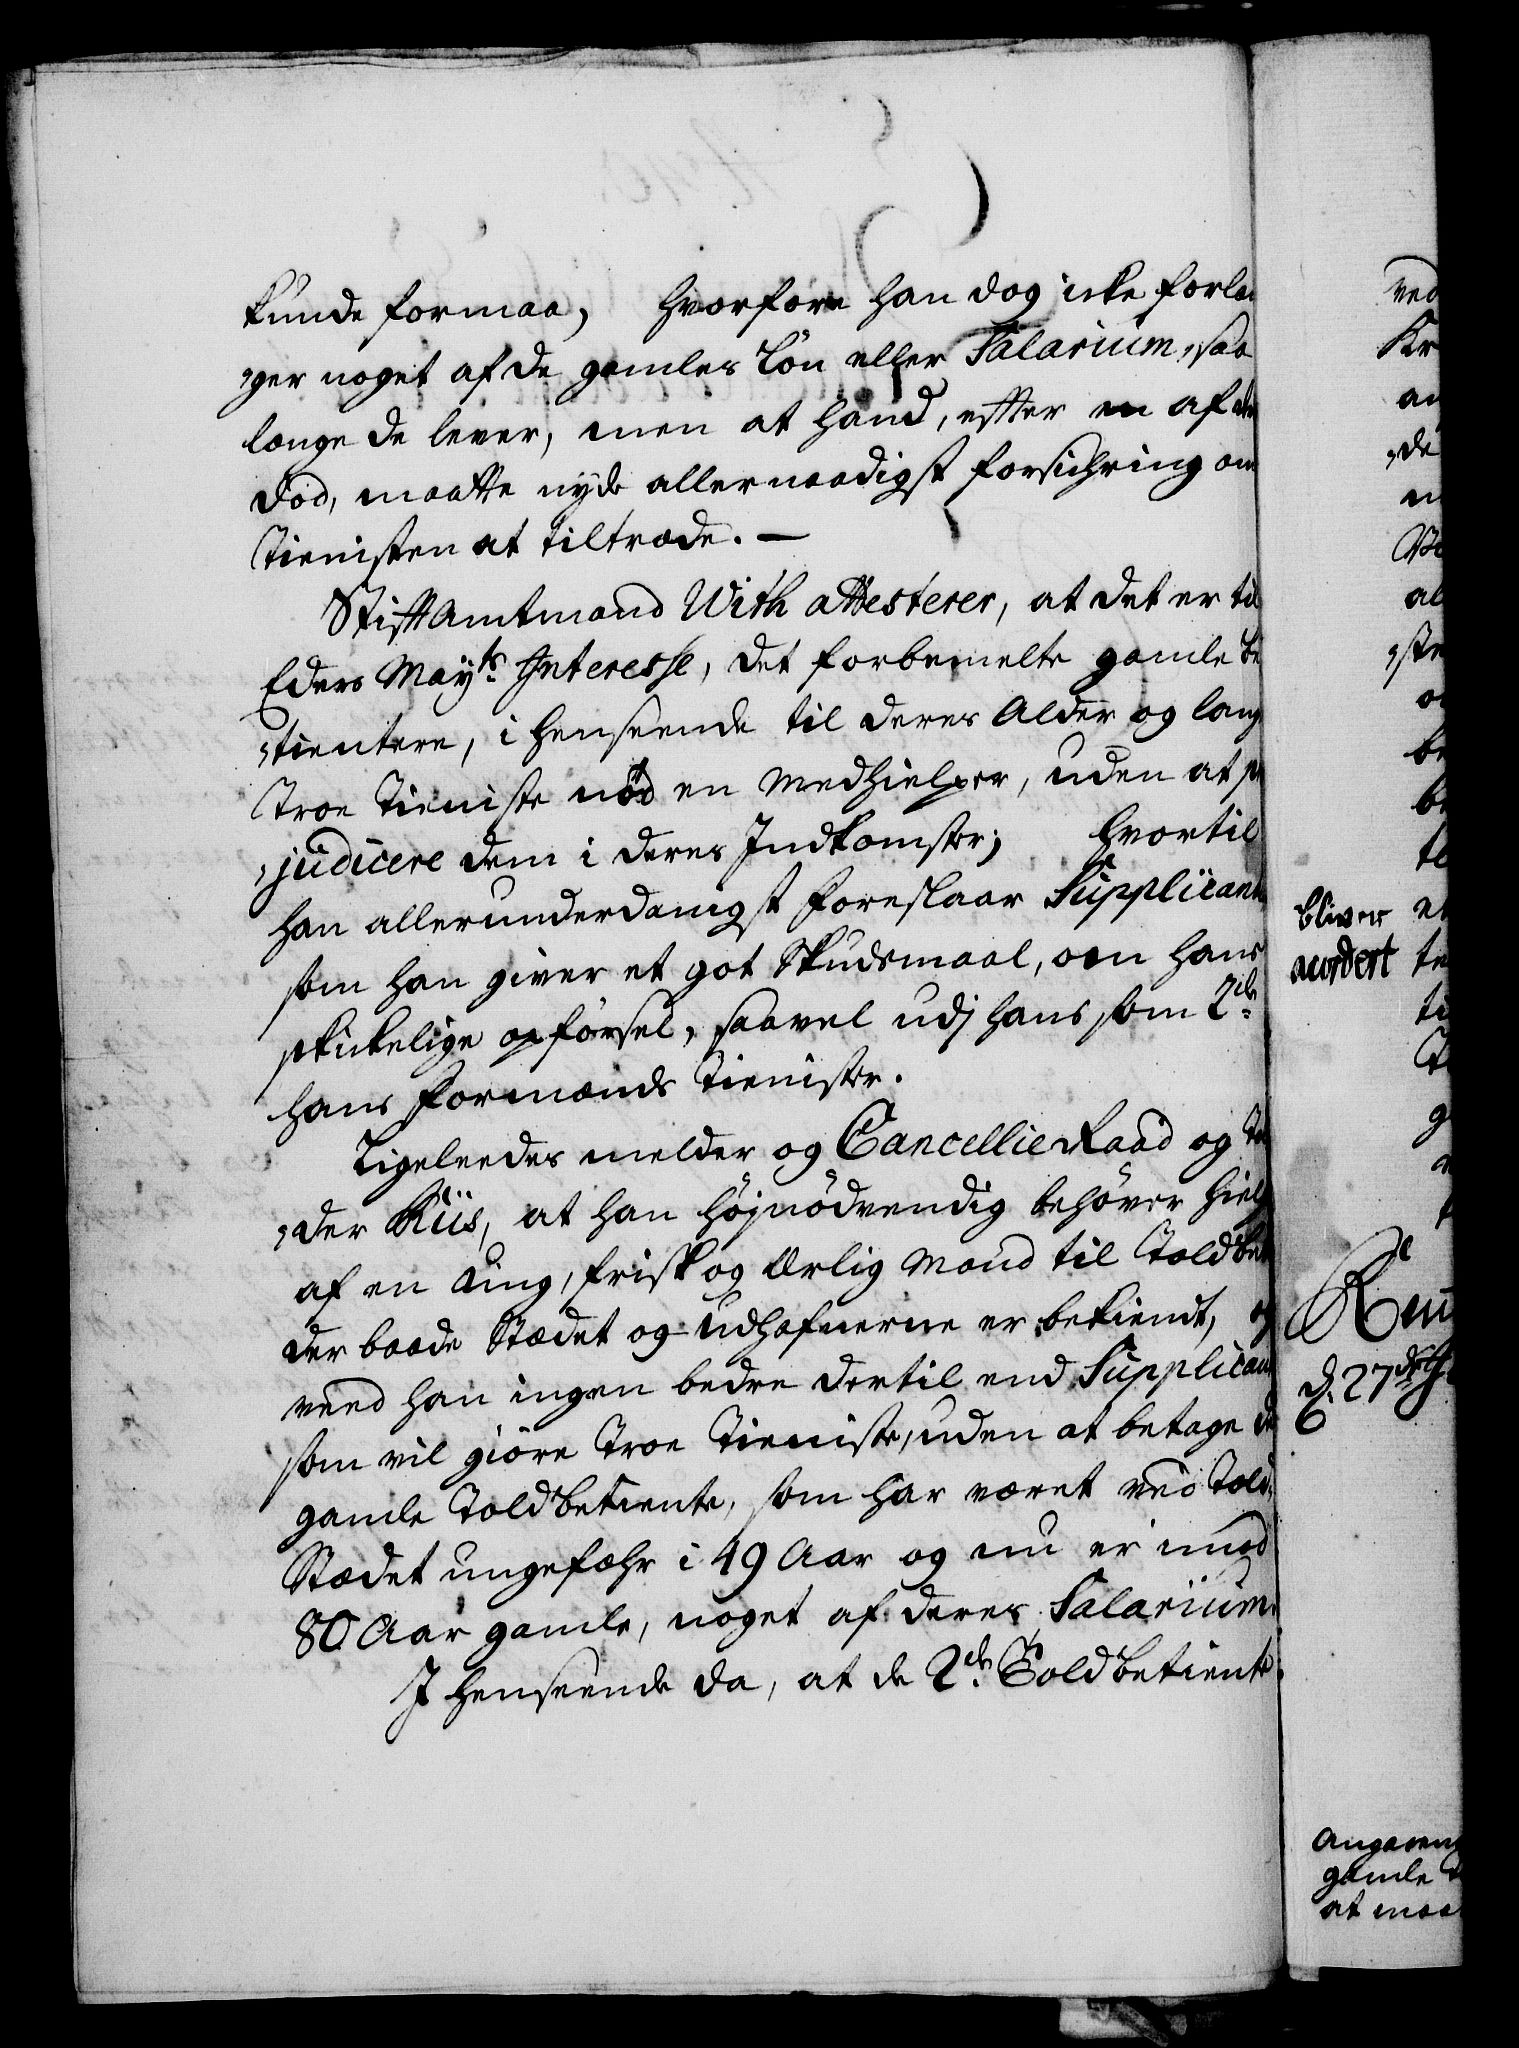 kunde formaa, hvorfore han dog icke forlan
"ger noget af de gamles Løn eller Salarium, saa
længe de lever, men at hand, effter en af de
død, maatte nyde allernaadigst forsichring om
Tienisten at tiltræde. —
Stifft Amtmand With attesterer, at det er til
Eders Mayts Interesse, det forbemelte gamle be
"tientere, i henseende til deres Alder og lang
troe Tieniste nød en medhielper, uden at præ
"judicere dem i deres Indkomster; hvortil
han allerunderdanigst foreslaar Supplicant
som han giver et got Skudsmaal, om hans
skickelige opførsel, saavel udj hans som 2de
hans Formænds Tienister.
Ligeleedes melder og Cancellie Raad og Tol
"der Riis, at han højnødvendig behøver hielp
af en Ung, frisk og ærlig Mand til Toldbet
der baade Stædet og Udhafnerne er bekiendt, og
veed han ingen bedre dertil end Supplicant
som vil giøre troe Tieniste, uden at betage de
gamle Toldbetiente, som har været ved Told
Stædet ungefæhr i 49 Aar og nu er imod
80 Aar gamle, noget af deres Salarium.
I henseende da, at de 2de Toldbetiente
ved
Kr
an
"de
bliver
accordert
Ren
d. 27de
Angaaend
gamle
at maa